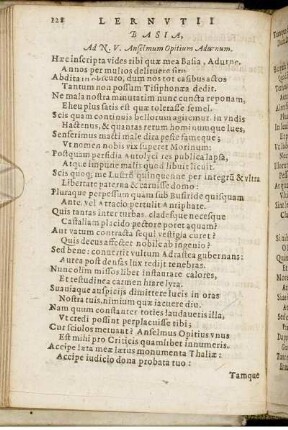 128 LERNVTII
BASIA,
Ad N. V. Anselmum Opitium Adurnum.
Hæc inscripta vides tibi quæ mea Basia, Adurne,
Annos per multos delituere sim
Abdita in obscuro, dum nos tot casibus actos
Tantum non possum Tisiphonæa dedit.
Ne mala nostra minutatim nunc cuncta reponam,
Eheu plus satis est quæ tolerasse semel.
Scis quam continuis bellorum agiremur. in vndis
Hactenus, & quantas rerum hominumque lues,
Senserimus macti male dira peste fameque;
Vt nomen nobis vix superet Morinum:
Postquam perfidia Autolyci res publica lapsa,
Atque impune malis quod libuit licuit.
Scis quoque me Lustrū quinquenne per integrū & vltra
Libertate paterna & caruisse domo:
Plurāque perpessum quam sub Busiride quisquam
Ante, vel Atracio pertulit Anriphate.
Quis tantas inter turbas, cladesque necesque
Castaliam placido pectore potet aquam?
Aut vatum contracta sequi vestigia curet?
Quis decus affectet nobile ab ingenio?
Sed bene: convertit vultum Adrastea gubernans:
Aurea post densas lux redijt tenebras.
Nunc olim missos libet instaurare calores,
Et testudinea carmen hiare lyra.
Suauiaque auspicijs dimittere lucis in oras
Nostra tuis, nimium quæ iacuere diu.
Nam quum constanter toties laudaueris illa,
Vt credi possint perplacuisse tibi;
Cur sciolos metuant? Anselmus Opitius vnus
Est mihi pro Criticis quamlibet innumeris.
Accipe læta meæ lætus monumenta Thaliæ:
Accipe iudicio dona probata tuo:
Tamque